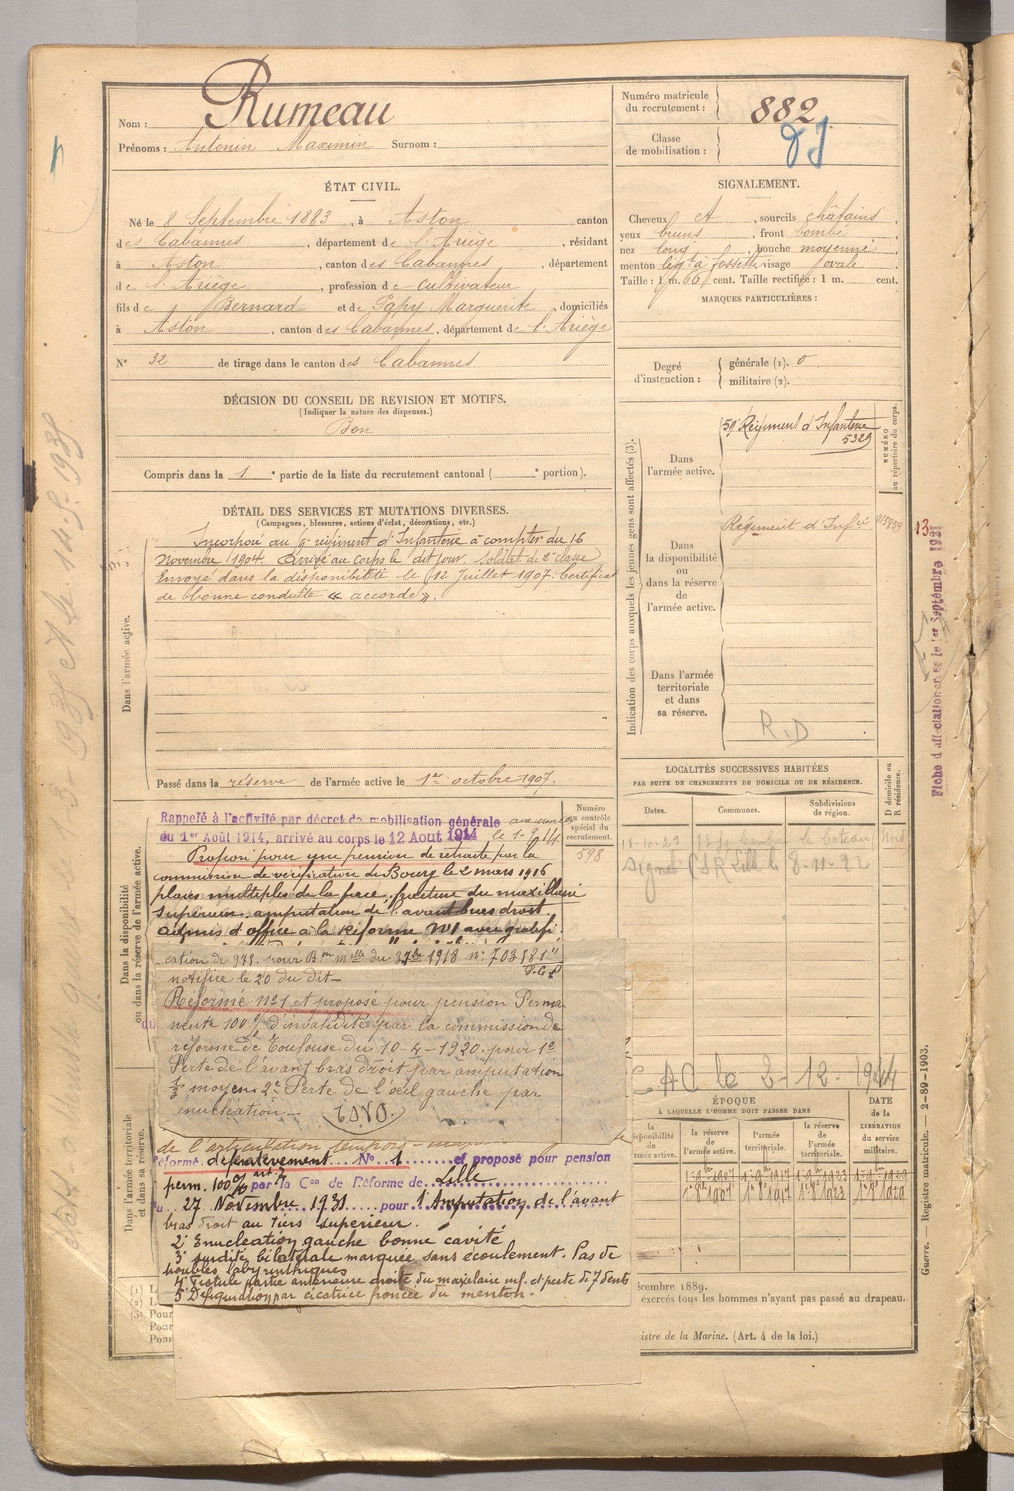 Nom : Rumeau
Prénoms : Antonin Maximin Surnom :
Numéro matricule du recrutement : 882
Classe de mobilisation :
ÉTAT CIVIL.
Né le 8 Septembre 1883, à Aston canton
des Cabannes, département de l'Ariège, résidant
à Aston, canton des Cabannes, département
de l'Ariège, profession de Cultivateur
fils de Bernard et de Papy Marguerite, domiciliés
à Aston, canton des Cabannes, département de l'Ariège
N° 32 de tirage dans le canton des Cabannes
SIGNALEMENT.
Cheveux et, sourcils châtains,
yeux bruns, front bombé
nez long, bouche moyenne,
menton à fossette visage ovale
Taille : 1 m. 66 cent. Taille rectifiée : 1 m. cent.
MARQUES PARTICULIÈRES :
Degré d'instruction : générale (1). 0
militaire (2).
DÉCISION DU CONSEIL DE REVISION ET MOTIFS.
(Indiquer la nature des dispenses.)
Bon
Compris dans la 1e partie de la liste du recrutement cantonal ( e portion).
DÉTAIL DES SERVICES ET MUTATIONS DIVERSES.
(Campagnes, blessures, actions d'éclat, décorations, etc.)
Dans l'armée active.
Incorporé au régiment d'Infanterie à compter du 16
Novembre 1904. Arrivé au corps le dit jour. Soldat de 2e classe
Envoyé dans la disponibilité le 12 Juillet 1907. Certificat
de bonne conduite « accordé ».
Passé dans la réserve de l'armée active le 1er octobre 1907.
Indication des corps auxquels les jeunes gens sont affectés (3).
NUMÉRO au répertoire du corps.
Dans l'armée active.
59e Régiment d'Infanterie
5329
Dans la disponibilité ou dans la réserve de l'armée active.
Régiment d'Infie
Dans l'armée territoriale et dans sa réserve.
R.D
Fiche d'affectation le 1er Septembre 1921
LOCALITÉS SUCCESSIVES HABITÉES
PAR SUITE DE CHANGEMENTS DE DOMICILE OU DE RÉSIDENCE.
Dates. Communes. Subdivisions de région. D domicile ou R résidence.
8-11-22
Dans la disponibilité ou dans la réserve de l'armée active.
Numéro au contrôle spécial du recrutement.
598
Rappelé à l'activité par décret de mobilisation générale
du 1er Août 1914, arrivé au corps le 12 Août 1914
Proposé pour une pension de retraite par la
commission de vérification de Bourg le 2 mars 1916
plaies multiples de la face, fracture du maxillaire
supérieur, amputation de l'avant bras droit.
admis d'office à la Réforme N°1 avec gratifi
cation de 975. pour 1918 n° 703181
notifiée le 20 du dit
Réformé n°1 et proposé pour pension Perma
nente 100% d'invalidité par la commission de
réforme de Toulouse du 10-4-1920. pour 1°
Perte de l'avant bras droit par amputation
moyen 2° Perte de l'œil gauche par
énucléation
C AC le 2-12-1944
Dans l'armée territoriale et dans sa réserve.
Réformé définitivement N° 1 et proposé pour pension
perm. 100% par la Con de Réforme de Lille
27 Novembre 1931 pour 1° Amputation de l'avant
bras droit au tiers supérieur.
2° Enucléation gauche bonne cavité
3° surdité bilatérale marquée sans écoulement. Pas de
troubles labyrinthiques
4° Fistule partie antérieure droite du maxillaire inf. et perte de 7 dents
5° Défiguration par cicatrice froncée du menton.
ÉPOQUE
À LAQUELLE L'HOMME DOIT PASSER DANS
la disponibilité de l'armée active. la réserve de l'armée active. l'armée territoriale. la réserve de l'armée territoriale.
DATE de la LIBÉRATION du service militaire.
décembre 1889.
exercés tous les hommes n'ayant pas passé au drapeau.
istre de la Marine. (Art. 4 de la loi.)
Guerre. Registre matricule. 2-89-1903.